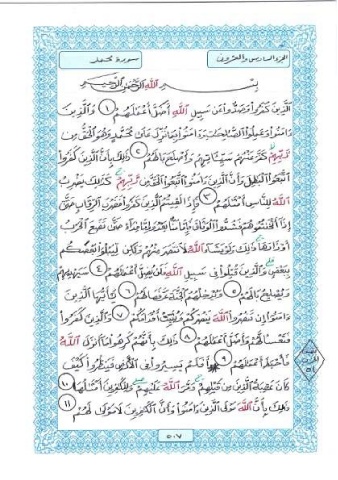 الجزء السادس والعشرون
سورة محمد
بسم الله الرحمن الرحيم
الذين كفروا وصدوا عن سبيل الله أضل أعملهم ١ والذين
ءامنوا وعملوا الصلحت وءامنوا بما نزل على محمد وهو الحق من
ربهم كفر عنهم سيءاتهم وأصلح بالهم ٢ ذلك بأن الذين كفروا
اتبعوا البطل وأن الذين ءامنوا اتبعوا الحق من ربهم كذلك يضرب
الله للناس أمثلهم ٣ فإذا لقيتم الذين كفروا فضرب الرقاب حتى
إذا أثخنتموهم فشدوا الوثاق فإما منا بعد وإما فداء حتى تضع الحرب
أوزارها ذلك ولو يشاء الله لانتصر منهم ولكن ليبلوا بعضكم
ببعض والذين قتلوا في سبيل الله فلن يضل أعملهم ٤ سيهديهم
ويصلح بالهم ٥ ويدخلهم الجنة عرفها لهم ٦ يأيها الذين
ءامنوا إن تنصروا الله ينصركم ويثبت أقدامكم ٧ والذين كفروا
فتعسا لهم وأضل أعملهم ٨ ذلك بأنهم كرهوا ما أنزل الله
فأحبط أعملهم ٩ أفلم يسيروا في الأرض فينظروا كيف
كان عقبة الذين من قبلهم دمر الله عليهم وللكفرين أمثلها ١٠
ذلك بأن الله مولى الذين ءامنوا وأن الكفرين لا مولى لهم ١١
٥٠٧